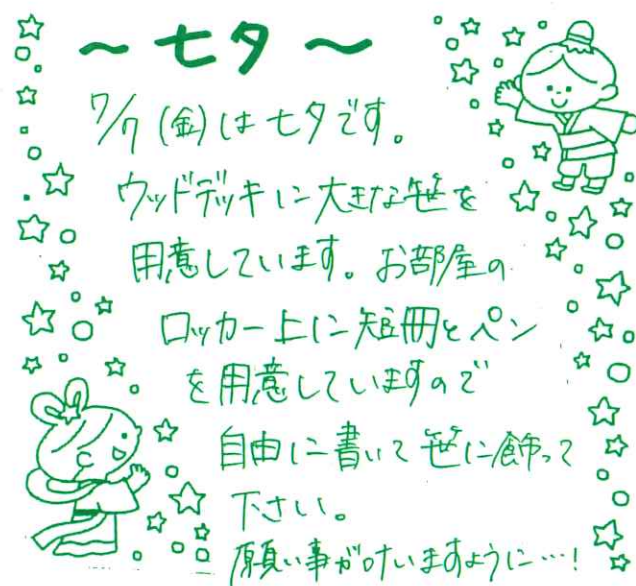 ～七夕～
7/7(金)は七夕です。
ウッドデッキに大きな笹を
用意しています。お部屋の
ロッカー上に短冊とペン
を用意していますので
自由に書いて笹に飾って
下さい。
願い事が叶いますように…！